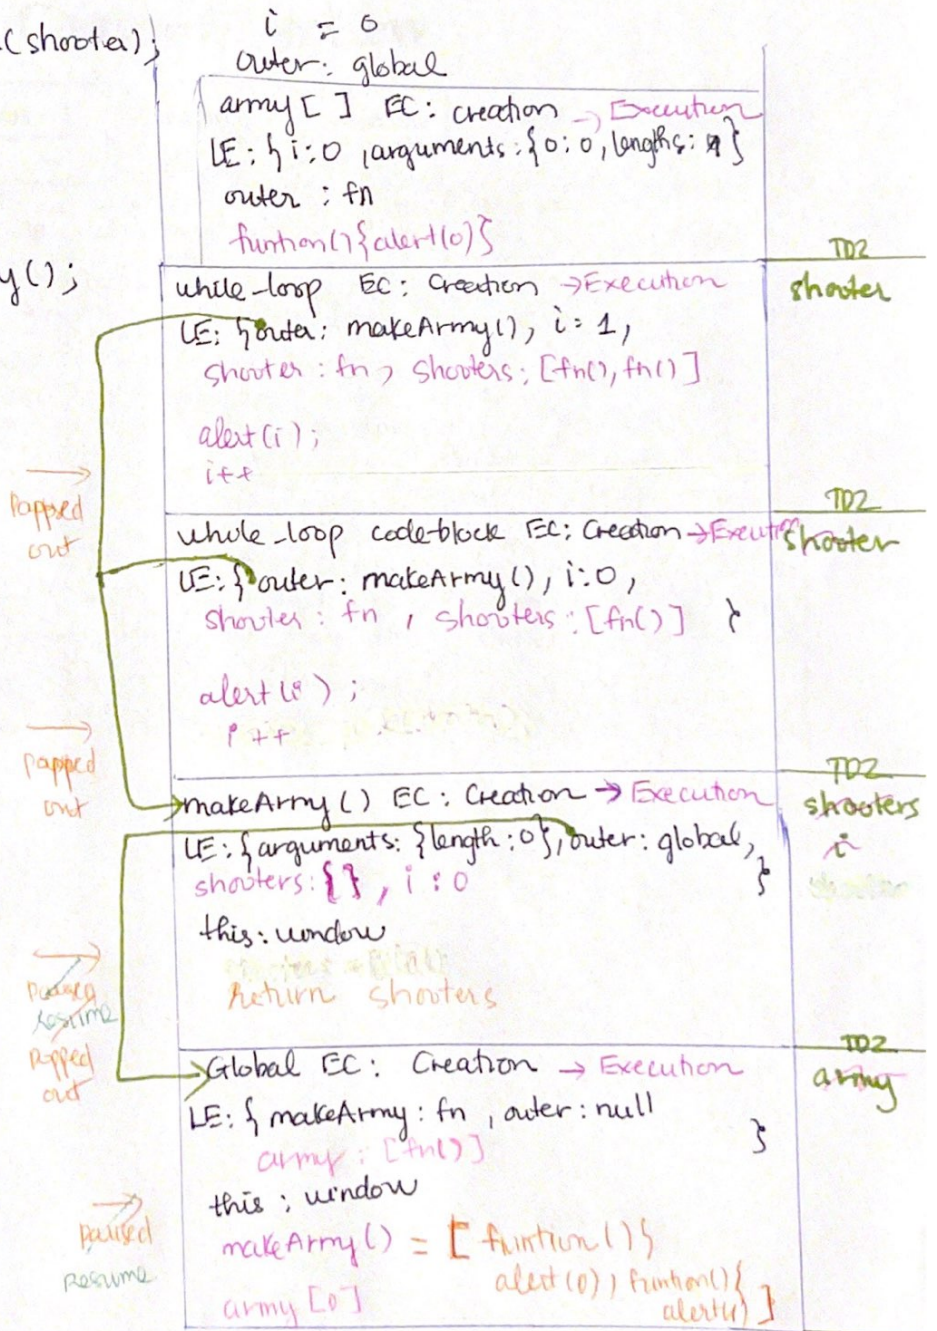 (shooter);
i = 0
outer: global
army[ ] EC: creation → Execution
LE: { i:0, arguments: {0:0, lengths: 1}
outer : fn
funtion(){alert(0)}
TDZ
y();
while-loop EC: Creation → Execution
shooter
LE: { outer: makeArmy(), i: 1,
shooter : fn, shooters: [fn(), fn()]
alert(i);
i++
Popped out
TDZ
while-loop code-block EC: Creation → Execution
shooter
LE: { outer: makeArmy(), i:0,
shooter : fn, shooters : [fn()] }
alert(i);
i++
popped out
TDZ
makeArmy() EC: Creation → Execution
shooters
LE: {arguments: {length: 0}, outer: global,
i
shooters: {}, i : 0 }
this: window
return shooters
paused
resume
popped out
TDZ
Global EC: Creation → Execution
army
LE: { makeArmy : fn, outer: null
army : [fn()] }
this : window
paused
makeArmy() = [ funtion(){
resume
alert(0), funtion(){
army[0]
alert(1) ]